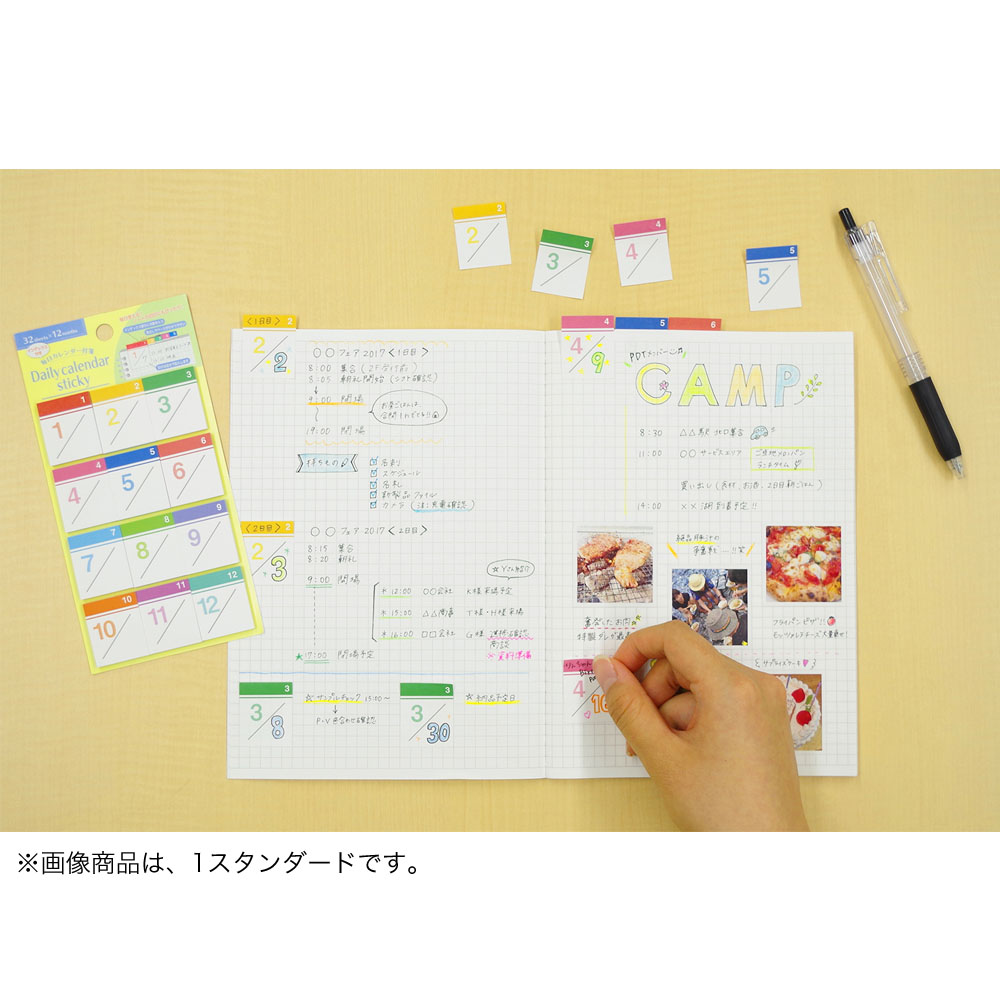 2
2
3
3
4
4
5
5
32 sheets × 12 months
毎日カレンダー付箋
Daily calendar
sticky
1
1
2
2
3
3
4
4
5
5
6
6
7
7
8
8
9
9
10
10
11
11
12
12
〈1日目〉 2
2/2
〇〇フェア2017〈1日目〉
8:00 集合
8:05 朝礼開始(シフト確認)
9:00 開場
19:00 閉場
持ちもの
名刺
スケジュール
名札
新製品ファイル
カメラ(注:充電確認)
〈2日目〉 2
2/3
〇〇フェア2017〈2日目〉
8:15 集合
8:20 朝礼
9:00 開場
*12:00 〇〇会社 K様来場予定
*15:00 △△商事 T様・H様来場
*16:00 □□会社 G様
商談
※資料準備
★17:00 閉場予定
3
3/8
☆サンプルチェック 15:00~
P・V
3
3/30
4
5
6
4/9
CAMP
8:30 △△駅 北口集合
11:00 〇〇サービスエリア
ご当地メロンパン
14:00 ××湖 到着予定!!
フライパンピザ!!
サプライズケーキ
4
16
※画像商品は、1スタンダードです。